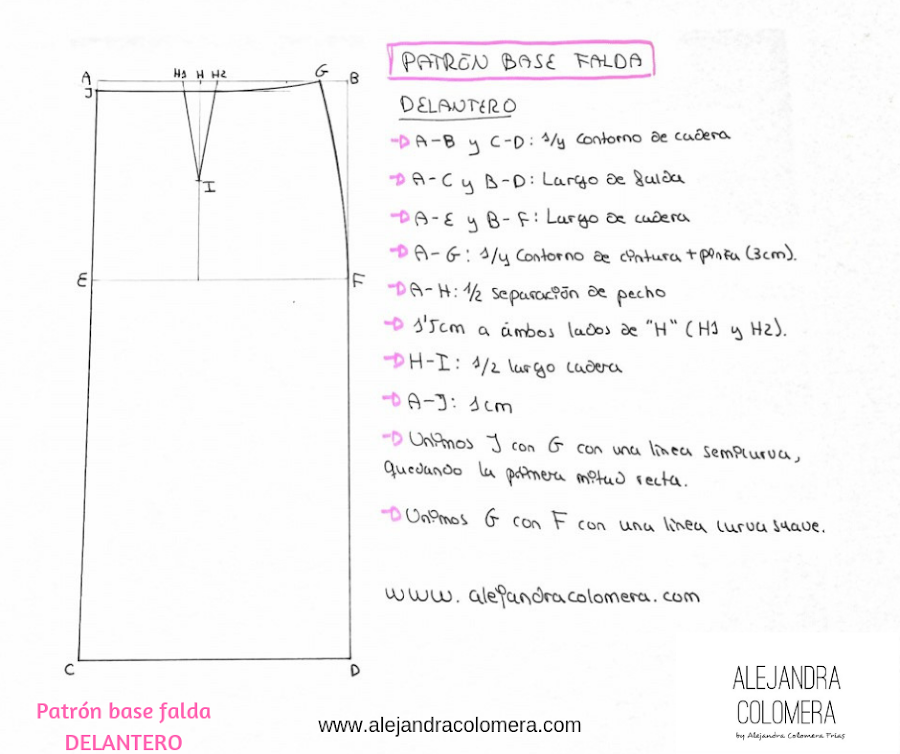 PATRÓN BASE FALDA
DELANTERO
A-B y C-D: 1/4 contorno de cadera
A-C y B-D: Largo de falda
A-E y B-F: Largo de cadera
A-G: 1/4 contorno de cintura + pinza (3cm).
A-H: 1/2 separación de pecho
1'5cm a ámbos lados de "H" (H1 y H2).
H-I: 1/2 largo cadera
A-J: 1cm
Unimos J con G con una línea semicurva,
quedando la primera mitad recta.
Unimos G con F con una línea curva suave.
www.alejandracolomera.com
A
H1 H H2
G
B
J
I
E
F
C
D
Patrón base falda
DELANTERO
www.alejandracolomera.com
ALEJANDRA
COLOMERA
by Alejandra Colomera Frías